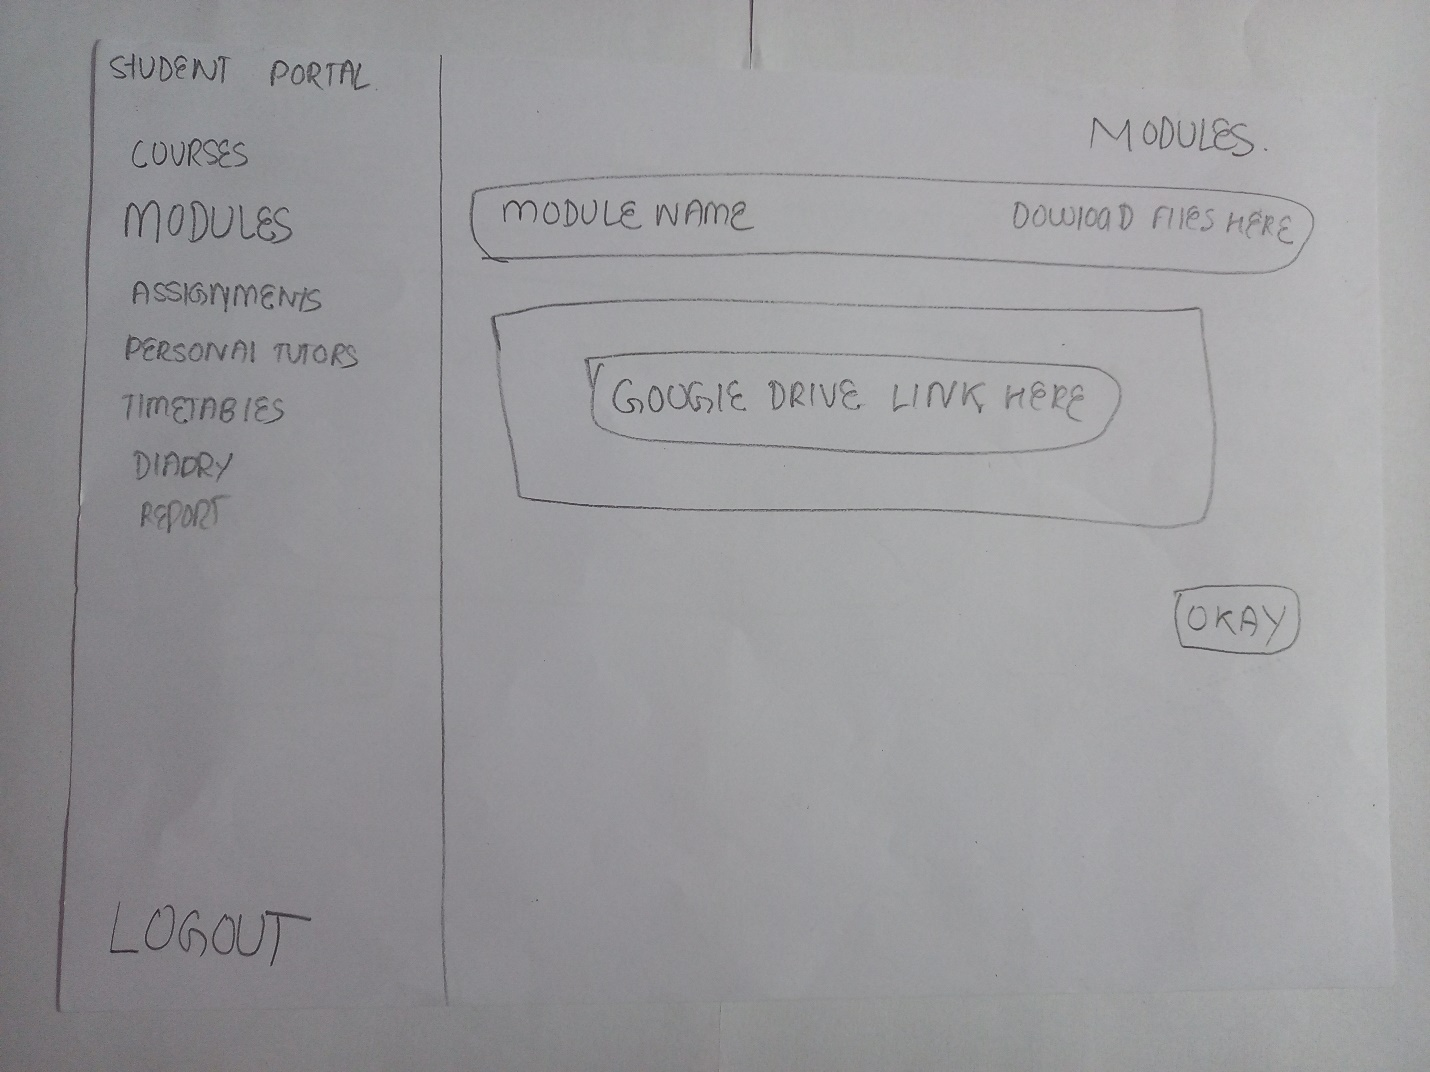 STUDENT PORTAL
COURSES
MODULES
ASSIGNMENTS
PERSONAl TUTORS
TIMETABlES
DIADRY
REPORT
LOGOUT
MODULES.
MODULE NAME DOWlOaD FIlES HERE
GOOGlE DRIVE LINK HERE
OKAY